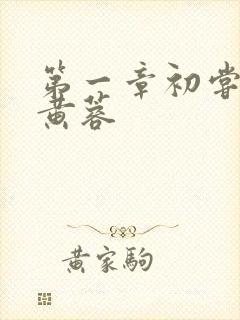 第一章初尝
黄蓉
黄家驹